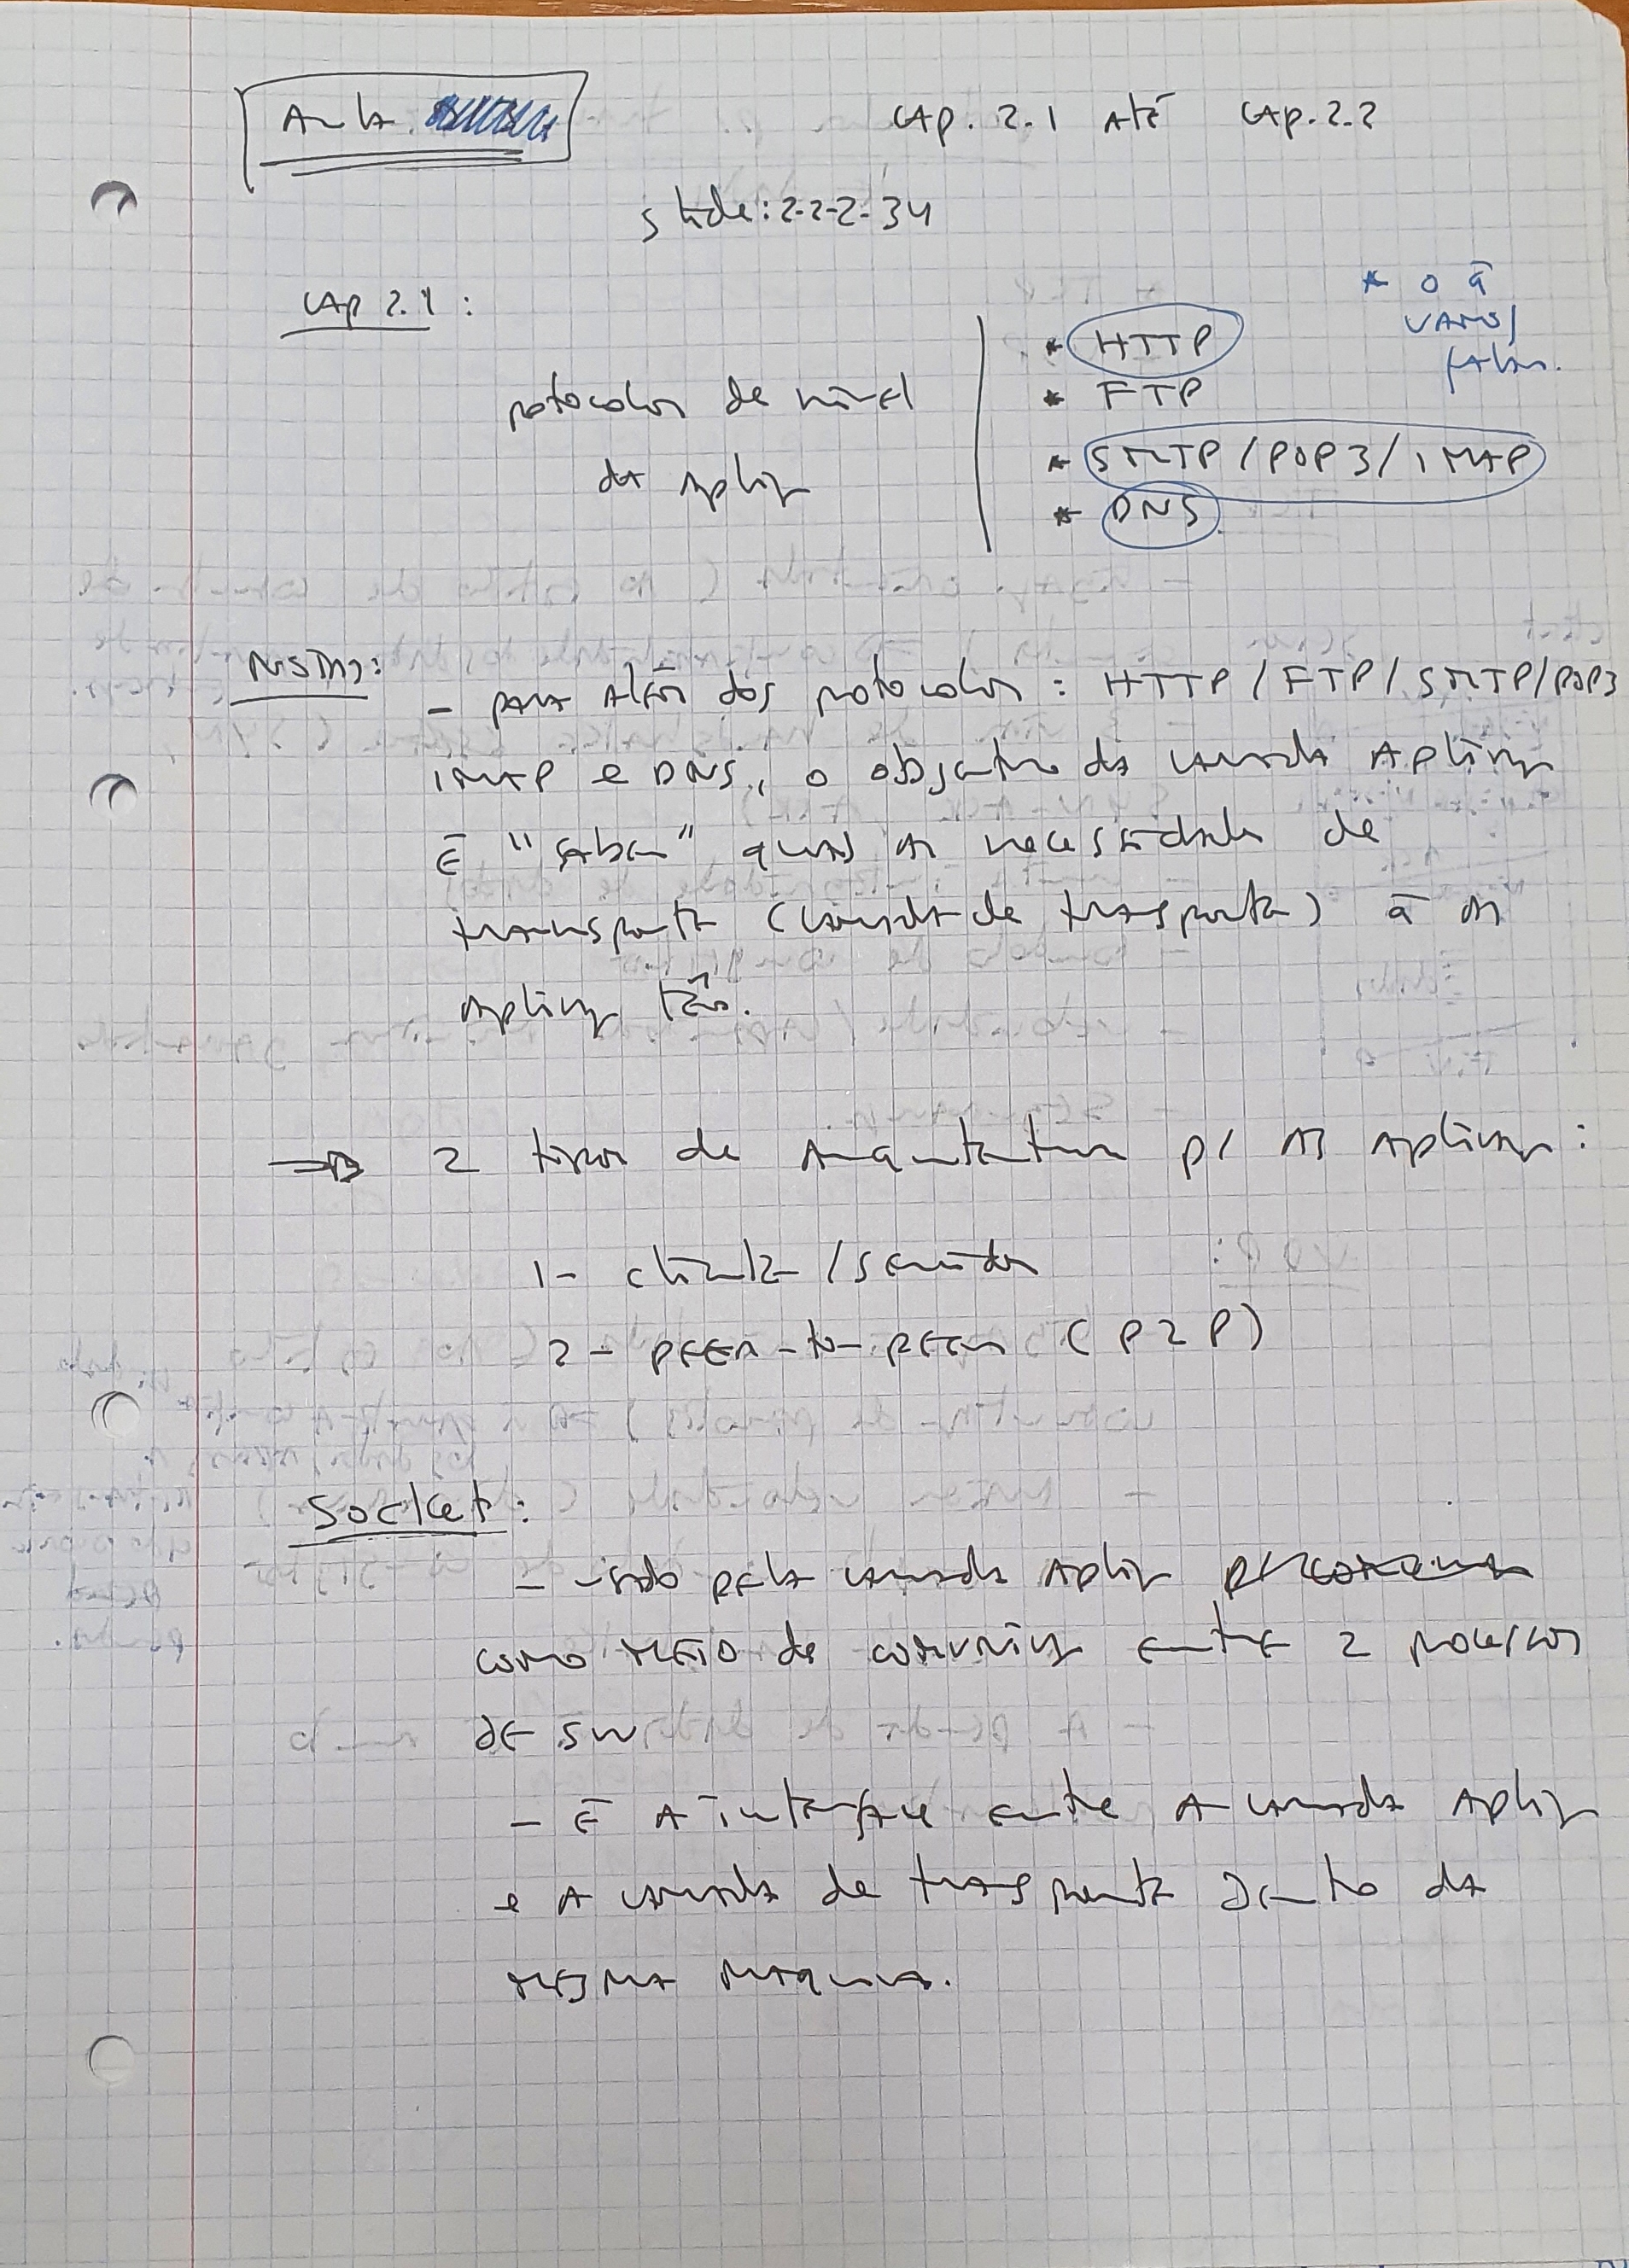 Aula
CAP. 2.1 Até CAP. 2.2
slide: 2-2-2-34
CAP 2.1:
* o q̄
vamos
falar.
protocolos de nível
da Aplicç
* HTTP
* FTP
* SMTP / POP3 / IMAP
* DNS
NOTAS:
- para Além dos protocolos: HTTP / FTP / SMTP / POP3
IMAP e DNS, o objectivo da camada Aplicaç
É "saber" quais as necessidades de
transporte (camada de trasporte) q̄ as
Aplicaç têm.
=> 2 tipos de Arquitetura p/ As Aplicaç:
1- cliente / servidor
2- PEER-to-PEER (P2P)
Socket:
- usado pela camada Aplicç
como MEIO de comunicaç entre 2 processos
DE SW
- É A interface entre A camada Aplicç
e A camada de trasporte Dentro da
MESMA MAQUINA.